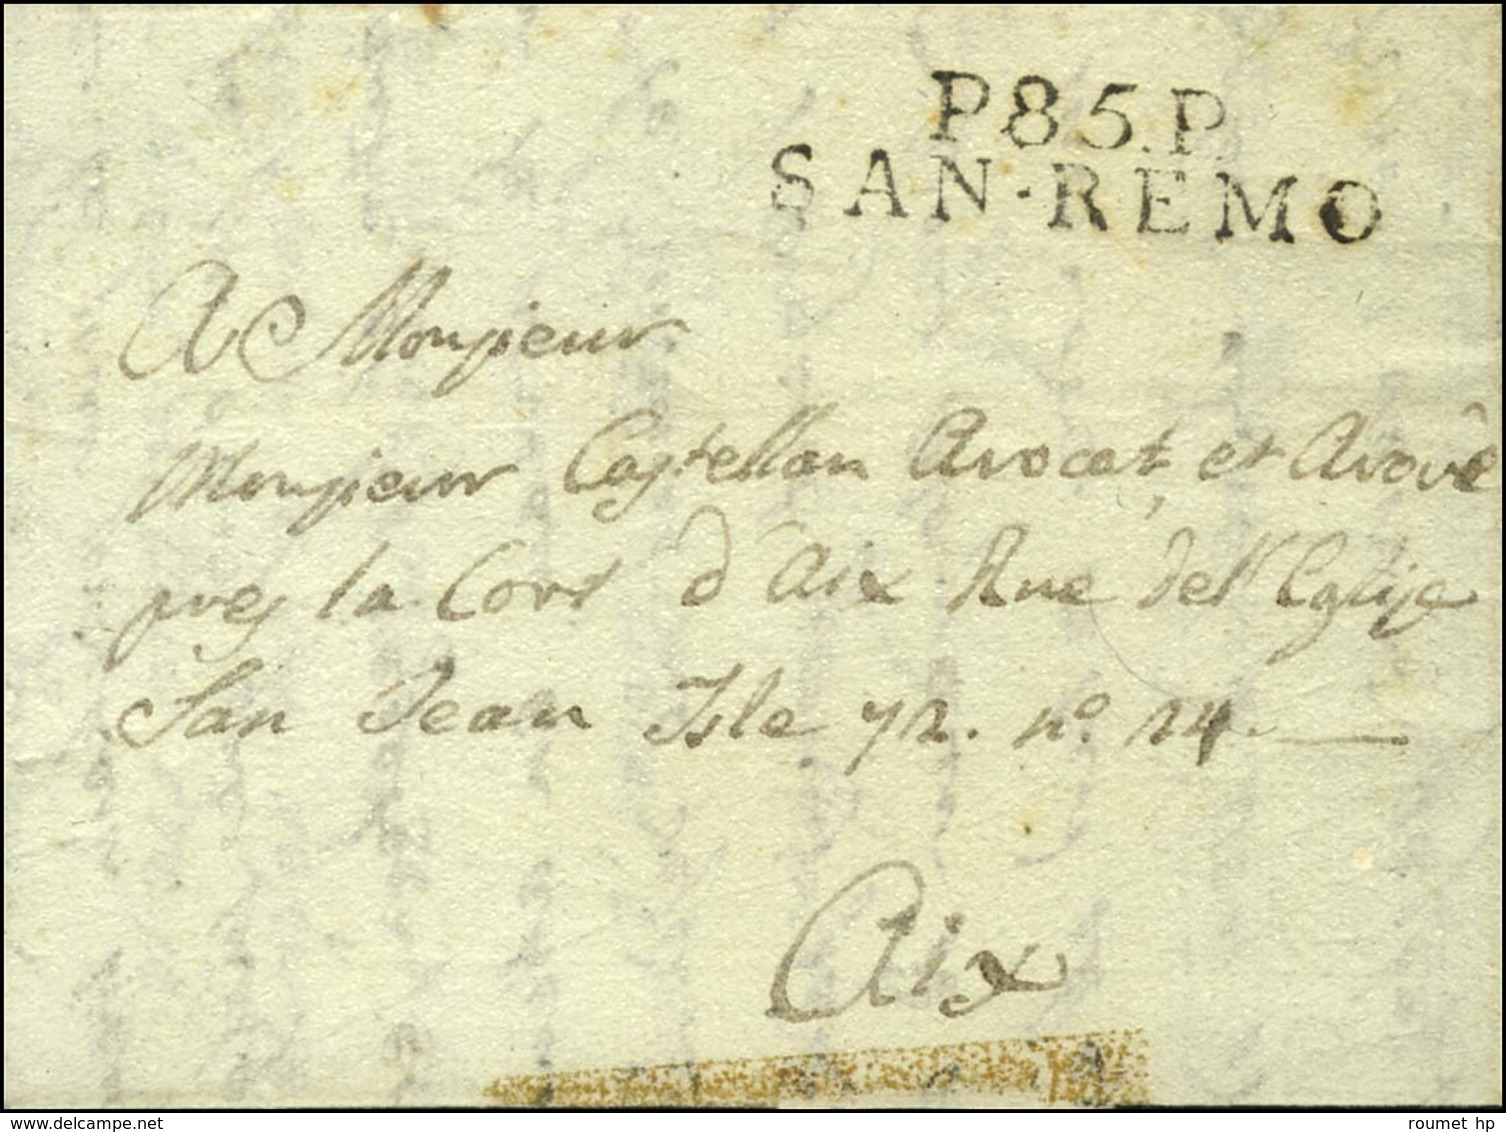 P85.P.
SAN·REMO
A Monsieur
Monsieur Castellan Avocat, et Avoué
pres la Cour d'Aix Rue de l'Eglise
San Jean Isle 72. n.o 24.
Aix
delcampe.net
roumet hp